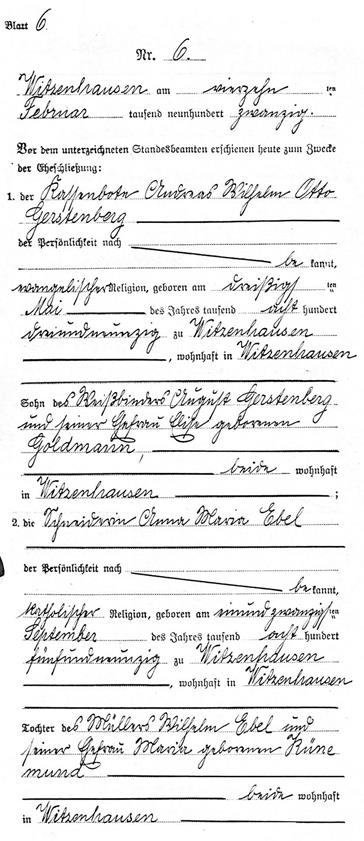 Blatt 6.
Nr. 6.
Witzenhausen am vierzehn ten
Februar tausend neunhundert zwanzig.
Vor dem unterzeichneten Standesbeamten erschienen heute zum Zwecke
der Eheschließung:
1. der Kassenbote Andreas Wilhelm Otto
Gerstenberg
der Persönlichkeit nach
be kannt,
evangelischer Religion, geboren am dreißigs ten
Mai des Jahres tausend acht hundert
dreiundneunzig zu Witzenhausen
, wohnhaft in Witzenhausen
Sohn des Weißbinders August Gerstenberg
und seiner Ehefrau Elise geborenen
Goldmann,
beide wohnhaft
in Witzenhausen ;
2. die Schneiderin Anna Maria Ebel
der Persönlichkeit nach
be kannt,
katholischer Religion, geboren am einundzwanzigs ten
September des Jahres tausend acht hundert
fünfundneunzig zu Witzenhausen
, wohnhaft in Witzenhausen
Tochter des Müllers Wilhelm Ebel und
seiner Ehefrau Maria geborenen Küne
mund
beide wohnhaft
in Witzenhausen